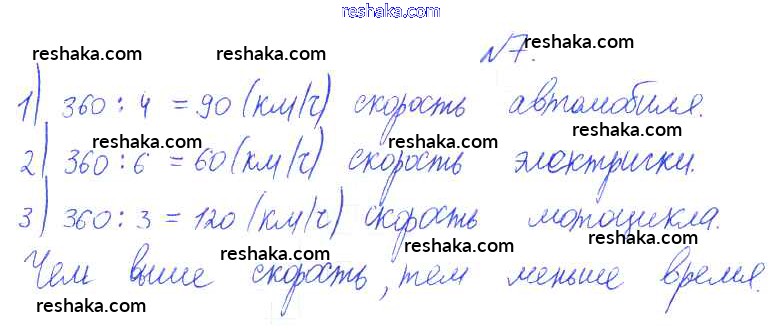 reshaka.com
№7.
reshaka.com reshaka.com reshaka.com
1) 360 : 4 = 90 (км/ч) скорость автомобиля.
reshaka.com reshaka.com reshaka.com
2) 360 : 6 = 60 (км/ч) скорость электрички.
reshaka.com reshaka.com reshaka.com
3) 360 : 3 = 120 (км/ч) скорость мотоцикла.
reshaka.com reshaka.com reshaka.com
Чем выше скорость, тем меньше время.
reshaka.com reshaka.com reshaka.com